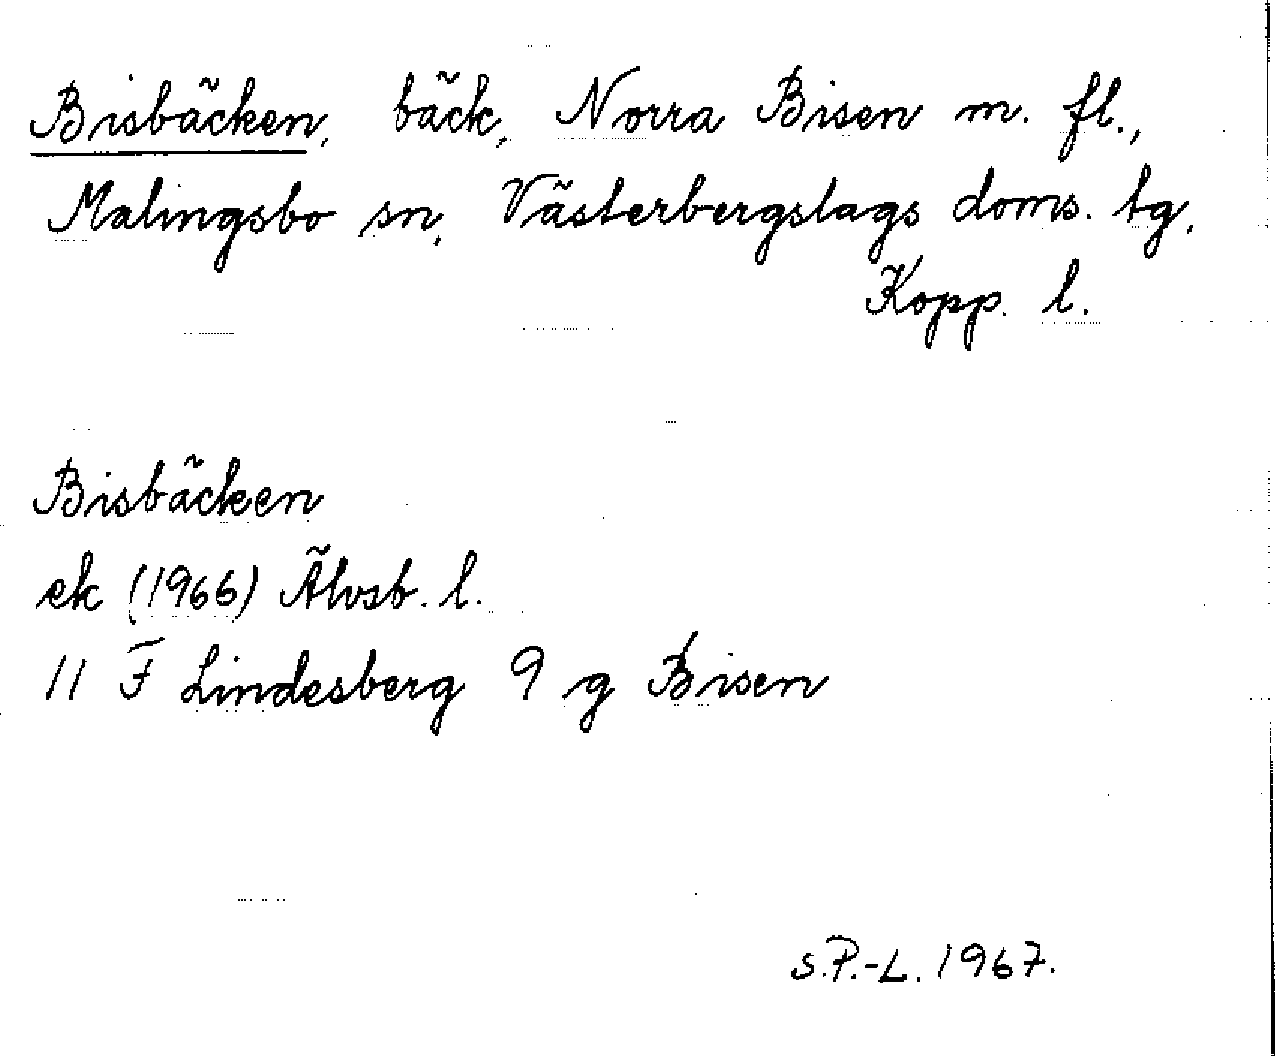 Bisbäcken, bäck, Norra Bisen m. fl.,
Malingsbo sn, Västerbergslags doms. tg.
Kopp. l.
Bisbäcken
ek (1966) Älvsb. l.
11 F Lindesberg 9 g Bisen
S.P.-L. 1967.